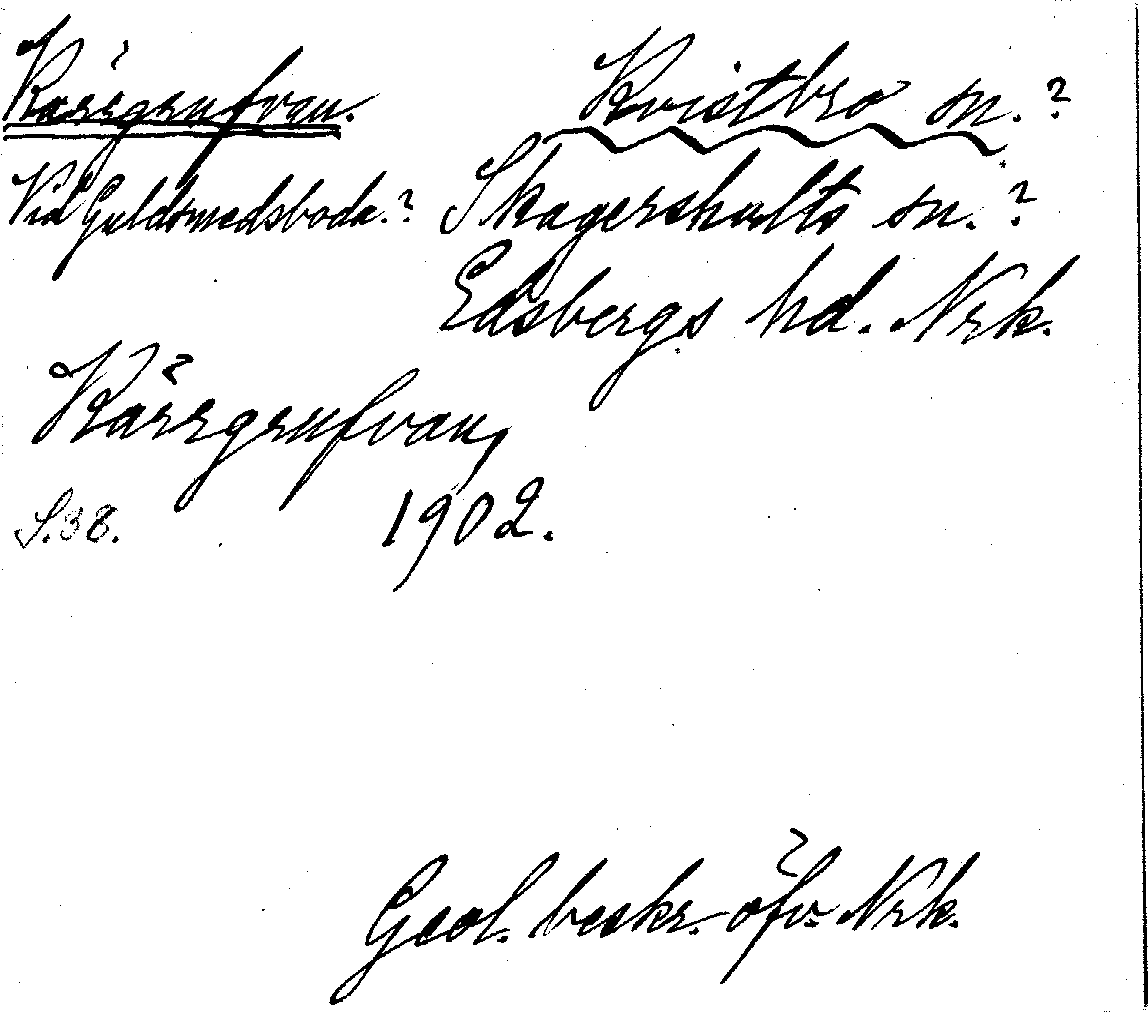 Kärrgrufvan. Kvistbro sn.?
Vid Guldsmedsboda.? Skagershults sn.?
Edsbergs hd. Nrk.
Kärrgrufvan,
S.38. 1902.
Geol. beskr. öfv. Nrk.